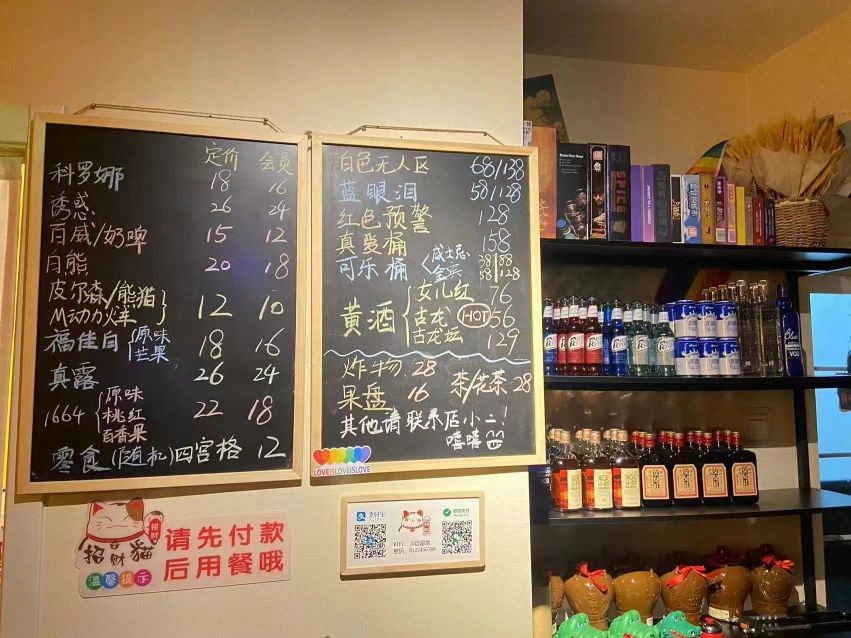 定价 会员
科罗娜 18 16
诱惑 26 24
百威/奶啤 15 12
白熊 20 18
皮尔森/熊猫
M动力火车 12 10
福佳白 原味 芒果 18 16
真露 26 24
1664 原味 桃红 百香果 22 18
零食(随机)四宫格 12
白色无人区 68/138
蓝眼泪 58/128
红色预警 128
真爱桶 158
可乐桶 威士忌 38 88
金宾 68 128
黄酒 女儿红 76
古龙 HOT 56
古龙坛 129
炸物 28
果盘 16 茶/花茶 28
其他请联系店小二!
嘻嘻
LOVEISLOVEISLOVE
招财
招财猫
温馨提示
请先付款
后用餐哦
支付宝
密码:0123456789
SPICE
VOD